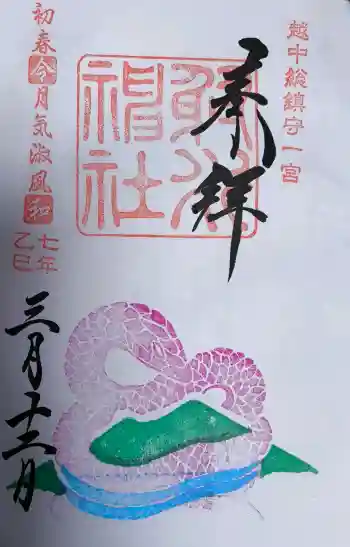 越中総鎮守一宮
奉拝
射水
神社
初春令月気淑風和
七年
乙巳
三月十二日